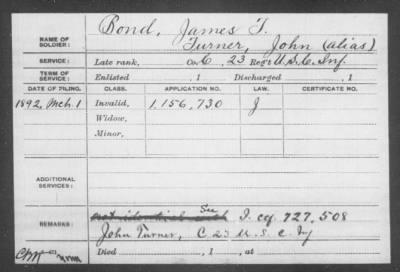 NAME OF SOLDIER: Bond, James T.
Turner, John (alias)
SERVICE: Late rank, Co. C, 23 Reg't U.S.C. Inf.
TERM OF SERVICE: Enlisted , 1 Discharged , 1
DATE OF FILING. CLASS. APPLICATION NO. LAW. CERTIFICATE NO.
1892, Mch. 1 Invalid, 1,156,730 J
Widow,
Minor,
ADDITIONAL SERVICES:
See
REMARKS: not identical with I. cf. 727,508
John Turner, C. 23 U.S.C. Inf
Died , 1 , at